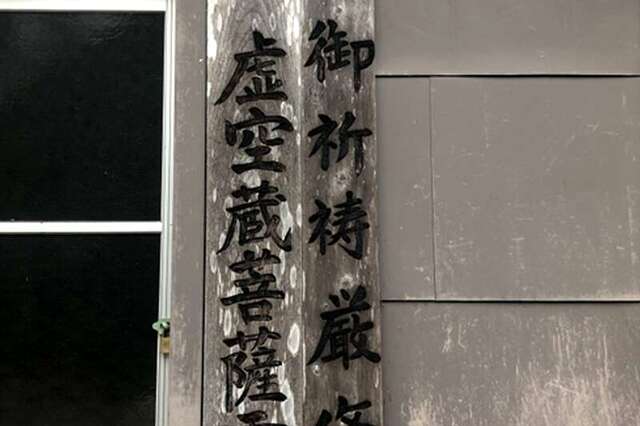 御祈祷厳修
虚空蔵菩薩